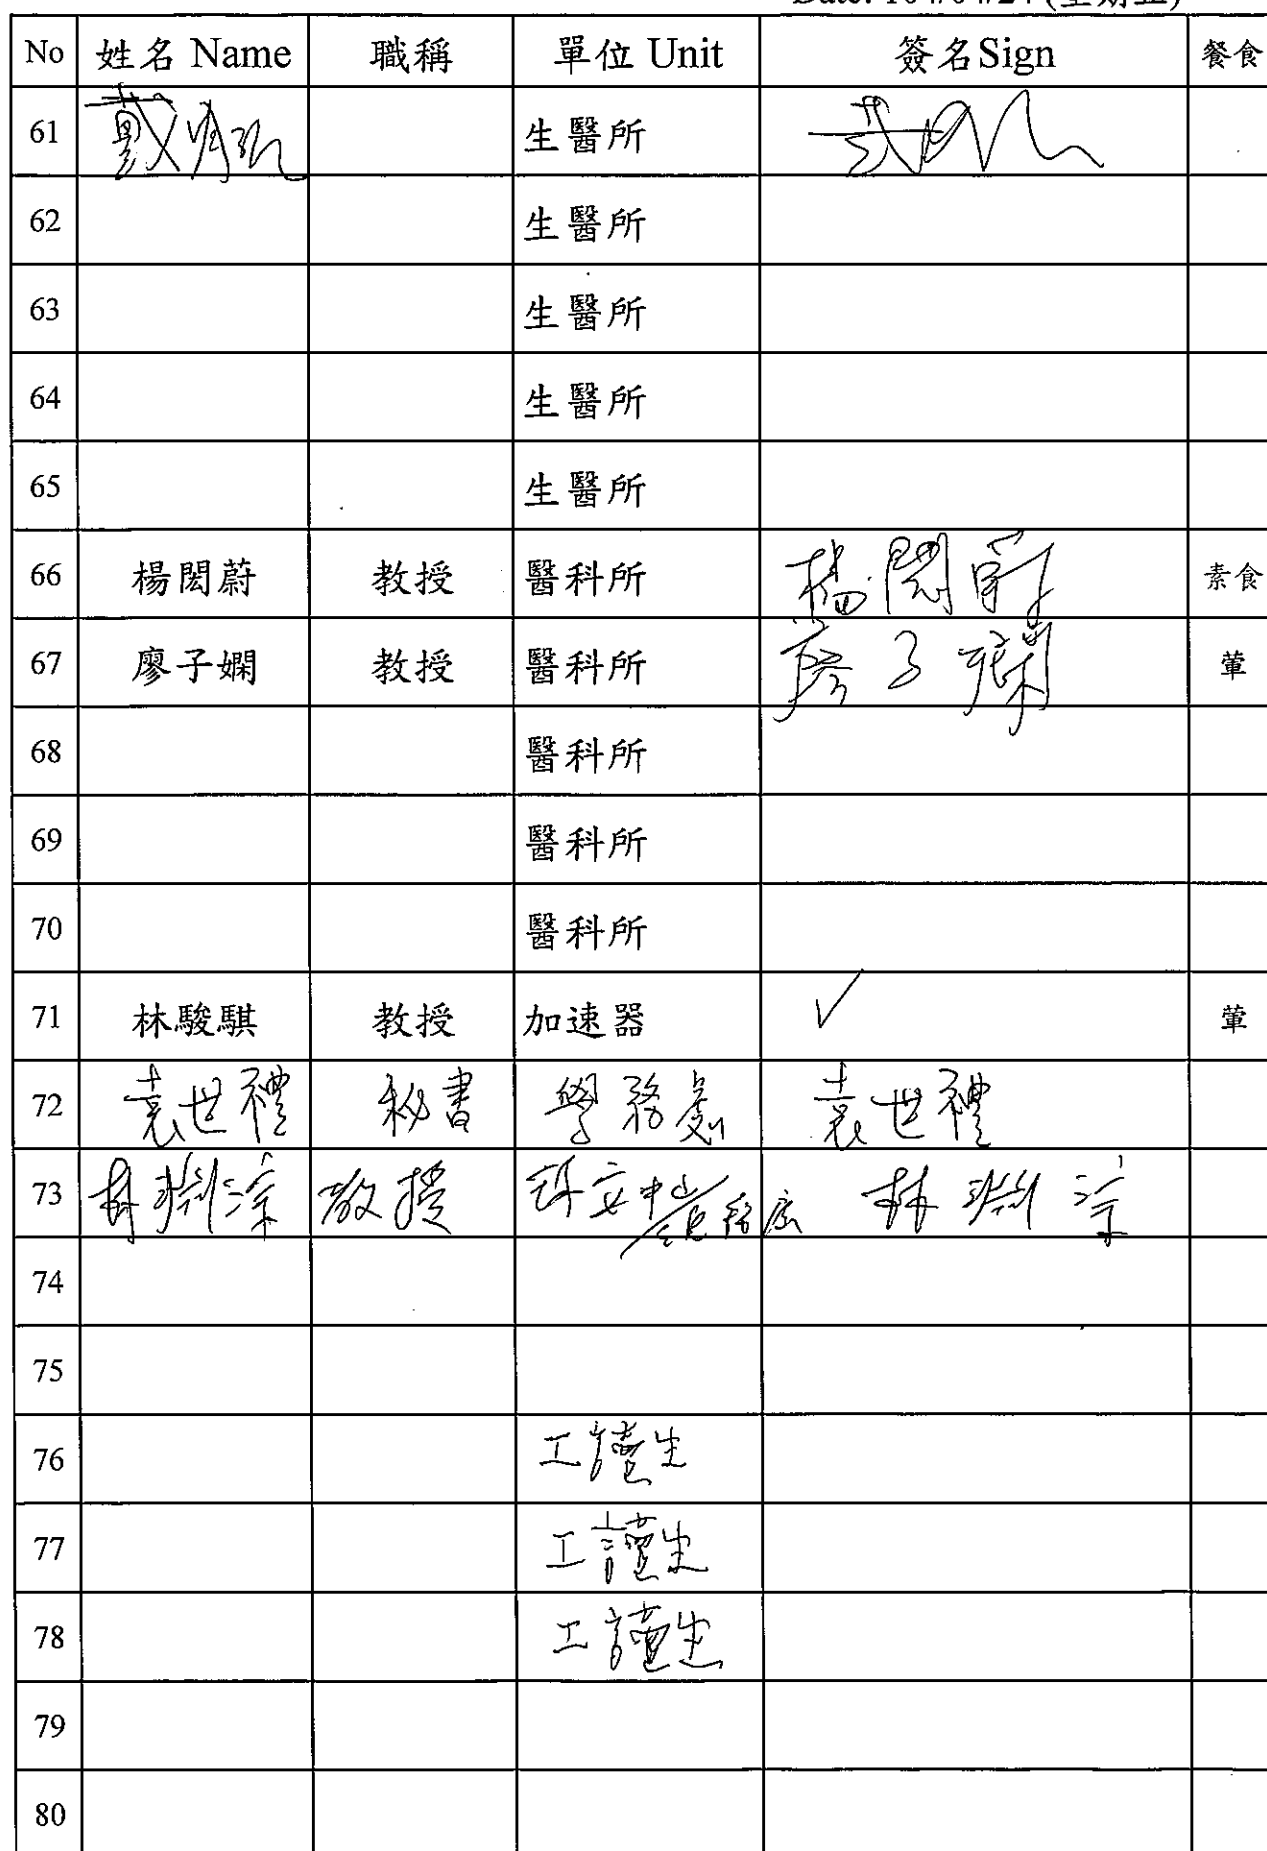 No 姓名 Name 職稱 單位 Unit 簽名Sign 餐食
61 戴明泓 生醫所
62 生醫所
63 生醫所
64 生醫所
65 生醫所
66 楊閎蔚 教授 醫科所 楊閎蔚 素食
67 廖子嫻 教授 醫科所 廖子嫻 葷
68 醫科所
69 醫科所
70 醫科所
71 林駿騏 教授 加速器 ✓ 葷
72 袁世禮 秘書 學務處 袁世禮
73 林淵淙 教授 林淵淙
74
75
76 工讀生
77 工讀生
78 工讀生
79
80